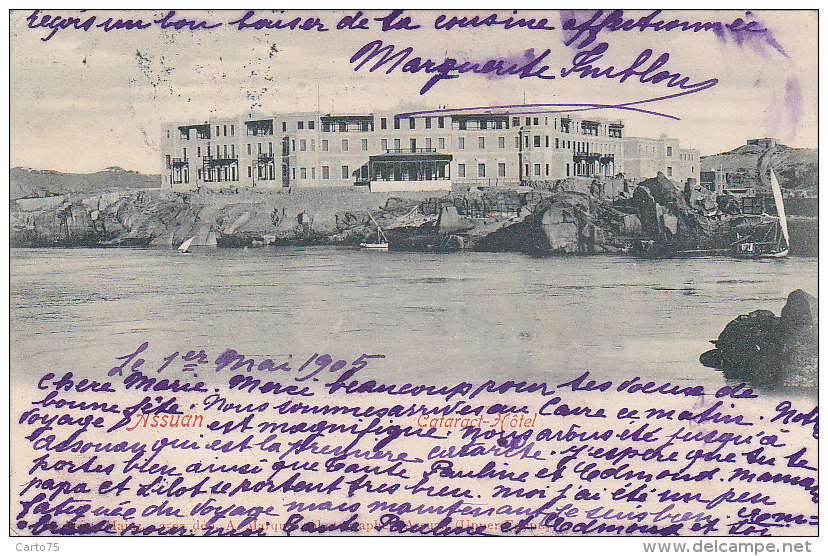 Reçois un bon baiser de la cousine affectionnée
Marguerite
Le 1er Mai 1905
Chère Marie. Merci beaucoup pour tes voeux de
bonne fête. Nous sommes arrivés au Caire ce matin. Notre
voyage est magnifique nous avons été jusqu'à
Assuan Cataract-Hôtel
Assouan qui est la première cataracte. J'espère que tu te
portes bien ainsi que Tante Pauline et Edmond. maman
papa et se portent très bien. moi j'ai été un peu
fatiguée du voyage mais maintenant je suis bien. Em-
brasse pour moi Tante Pauline et Edmond et toi